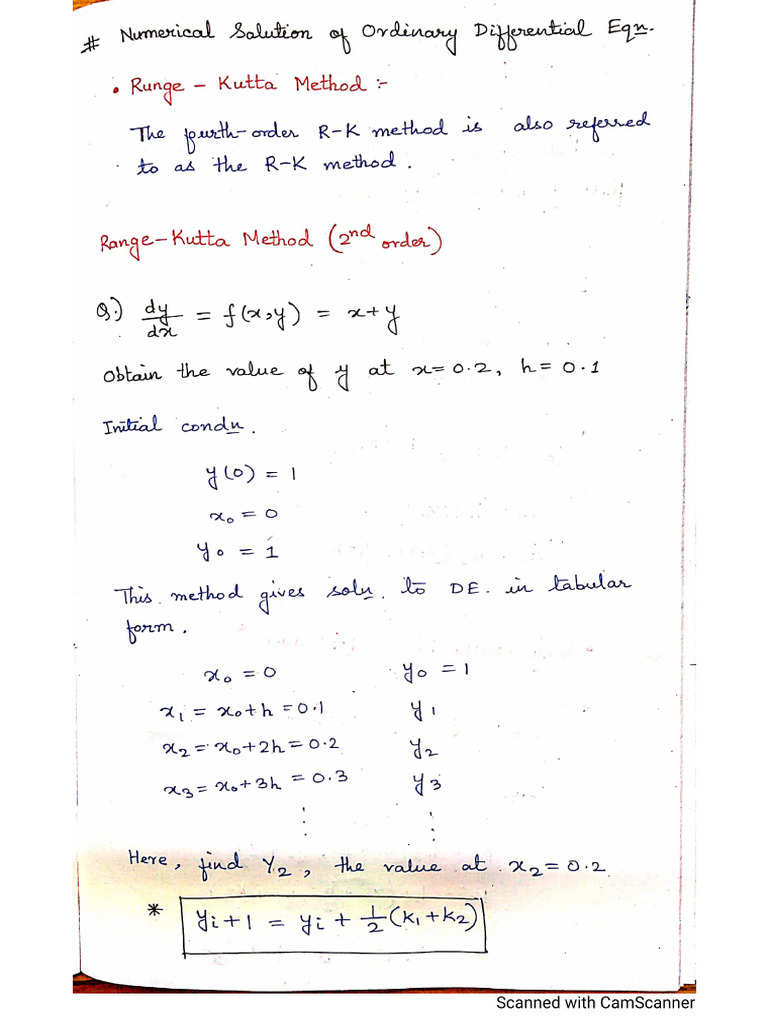 # Numerical Solution of Ordinary Differential Eqn.
• Runge – Kutta Method :-
The fourth-order R-K method is also referred
to as the R-K method.
Range-Kutta Method (2nd order)
Q.) dy/dx = f(x,y) = x+y
Obtain the value of y at x=0.2, h=0.1
Initial condn.
y(0) = 1
x₀ = 0
y₀ = 1
This method gives soln. to DE. in tabular
form.
x₀ = 0 y₀ = 1
x₁ = x₀+h = 0.1 y₁
x₂ = x₀+2h = 0.2 y₂
x₃ = x₀+3h = 0.3 y₃
⋮ ⋮
Here, find Y₂, the value at x₂=0.2
* yi+1 = yi + 1/2 (K₁+K₂)
Scanned with CamScanner